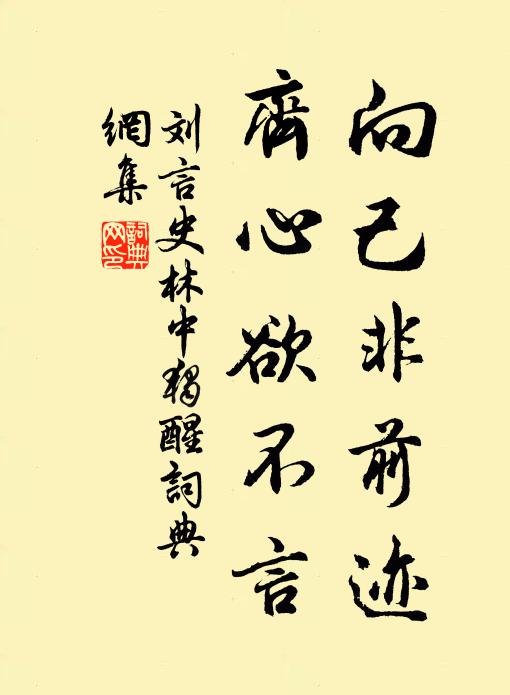 向已非前迹
齊心欲不言
刘言史林中獨醒詞典
網集
詞典網印